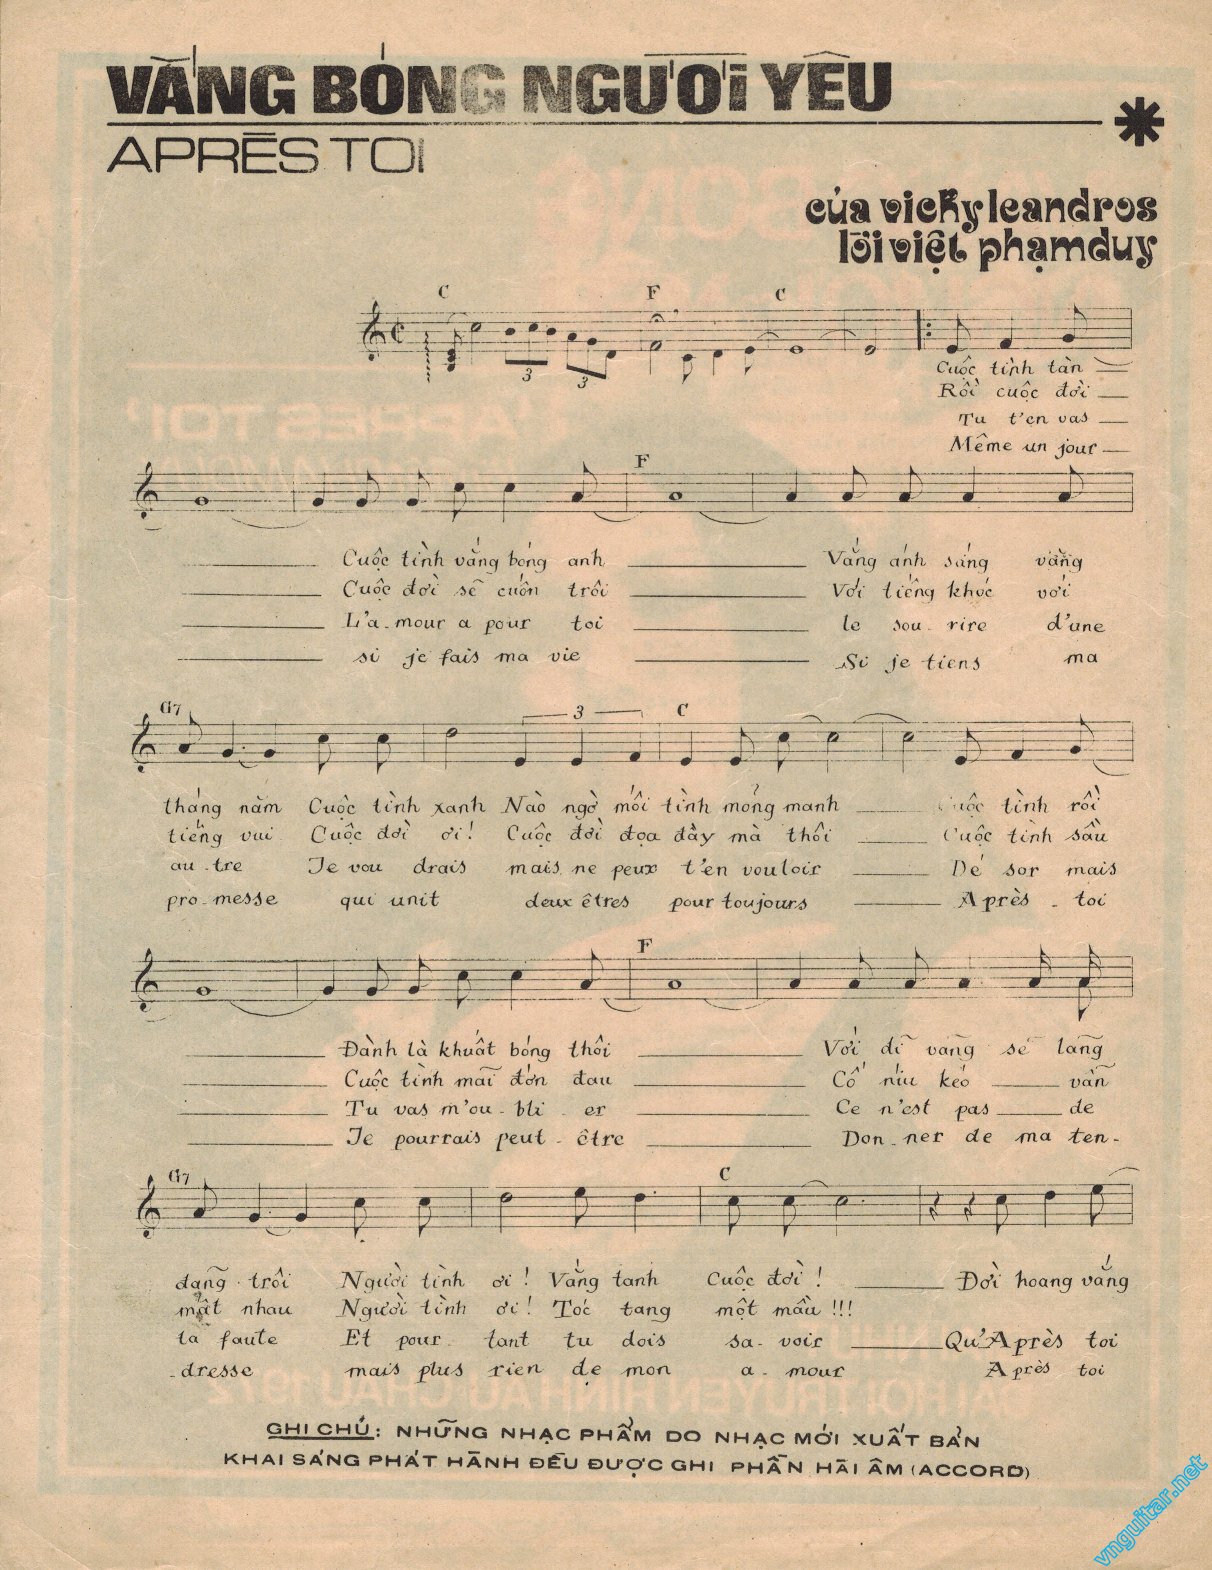 VẮNG BÓNG NGƯỜI YÊU
APRÈS TOI
của vicky leandros
lời việt phạm duy
C F C
3 3
Cuộc tình tàn
Rồi cuộc đời
Tu t'en vas
Même un jour
F
Cuộc tình vắng bóng anh Vắng ánh sáng vầng
Cuộc đời sẽ cuốn trôi Với tiếng khóc với
L'a-mour a pour toi le sou-rire d'une
si je fais ma vie Si je tiens ma
G7 3 C
tháng năm Cuộc tình xanh Nào ngờ mối tình mỏng manh Cuộc tình rồi
tiếng vui Cuộc đời ơi! Cuộc đời đọa đầy mà thôi Cuộc tình sầu
au-tre Je vou drais mais ne peux t'en vouloir Dé sor mais
pro-messe qui unit deux êtres pour toujours Après - toi
F
Đành là khuất bóng thôi Với dĩ vãng sẽ lãng
Cuộc tình mãi đớn đau Cố níu kéo vẫn
Tu vas m'ou-bli-er Ce n'est pas de
Je pourrais peut-être Don-ner de ma ten-
G7 C
đãng trôi Người tình ơi! Vắng tanh Cuộc đời! Đời hoang vắng
mất nhau Người tình ơi! Tóc tang một mầu!!!
ta faute Et pour tant tu dois sa-voir Qu'Après toi
-dresse mais plus rien de mon a-mour Après toi
GHI CHÚ: NHỮNG NHẠC PHẨM DO NHẠC MỚI XUẤT BẢN
KHAI SÁNG PHÁT HÀNH ĐỀU ĐƯỢC GHI PHẦN HÀI ÂM (ACCORD)
vnguitar.net